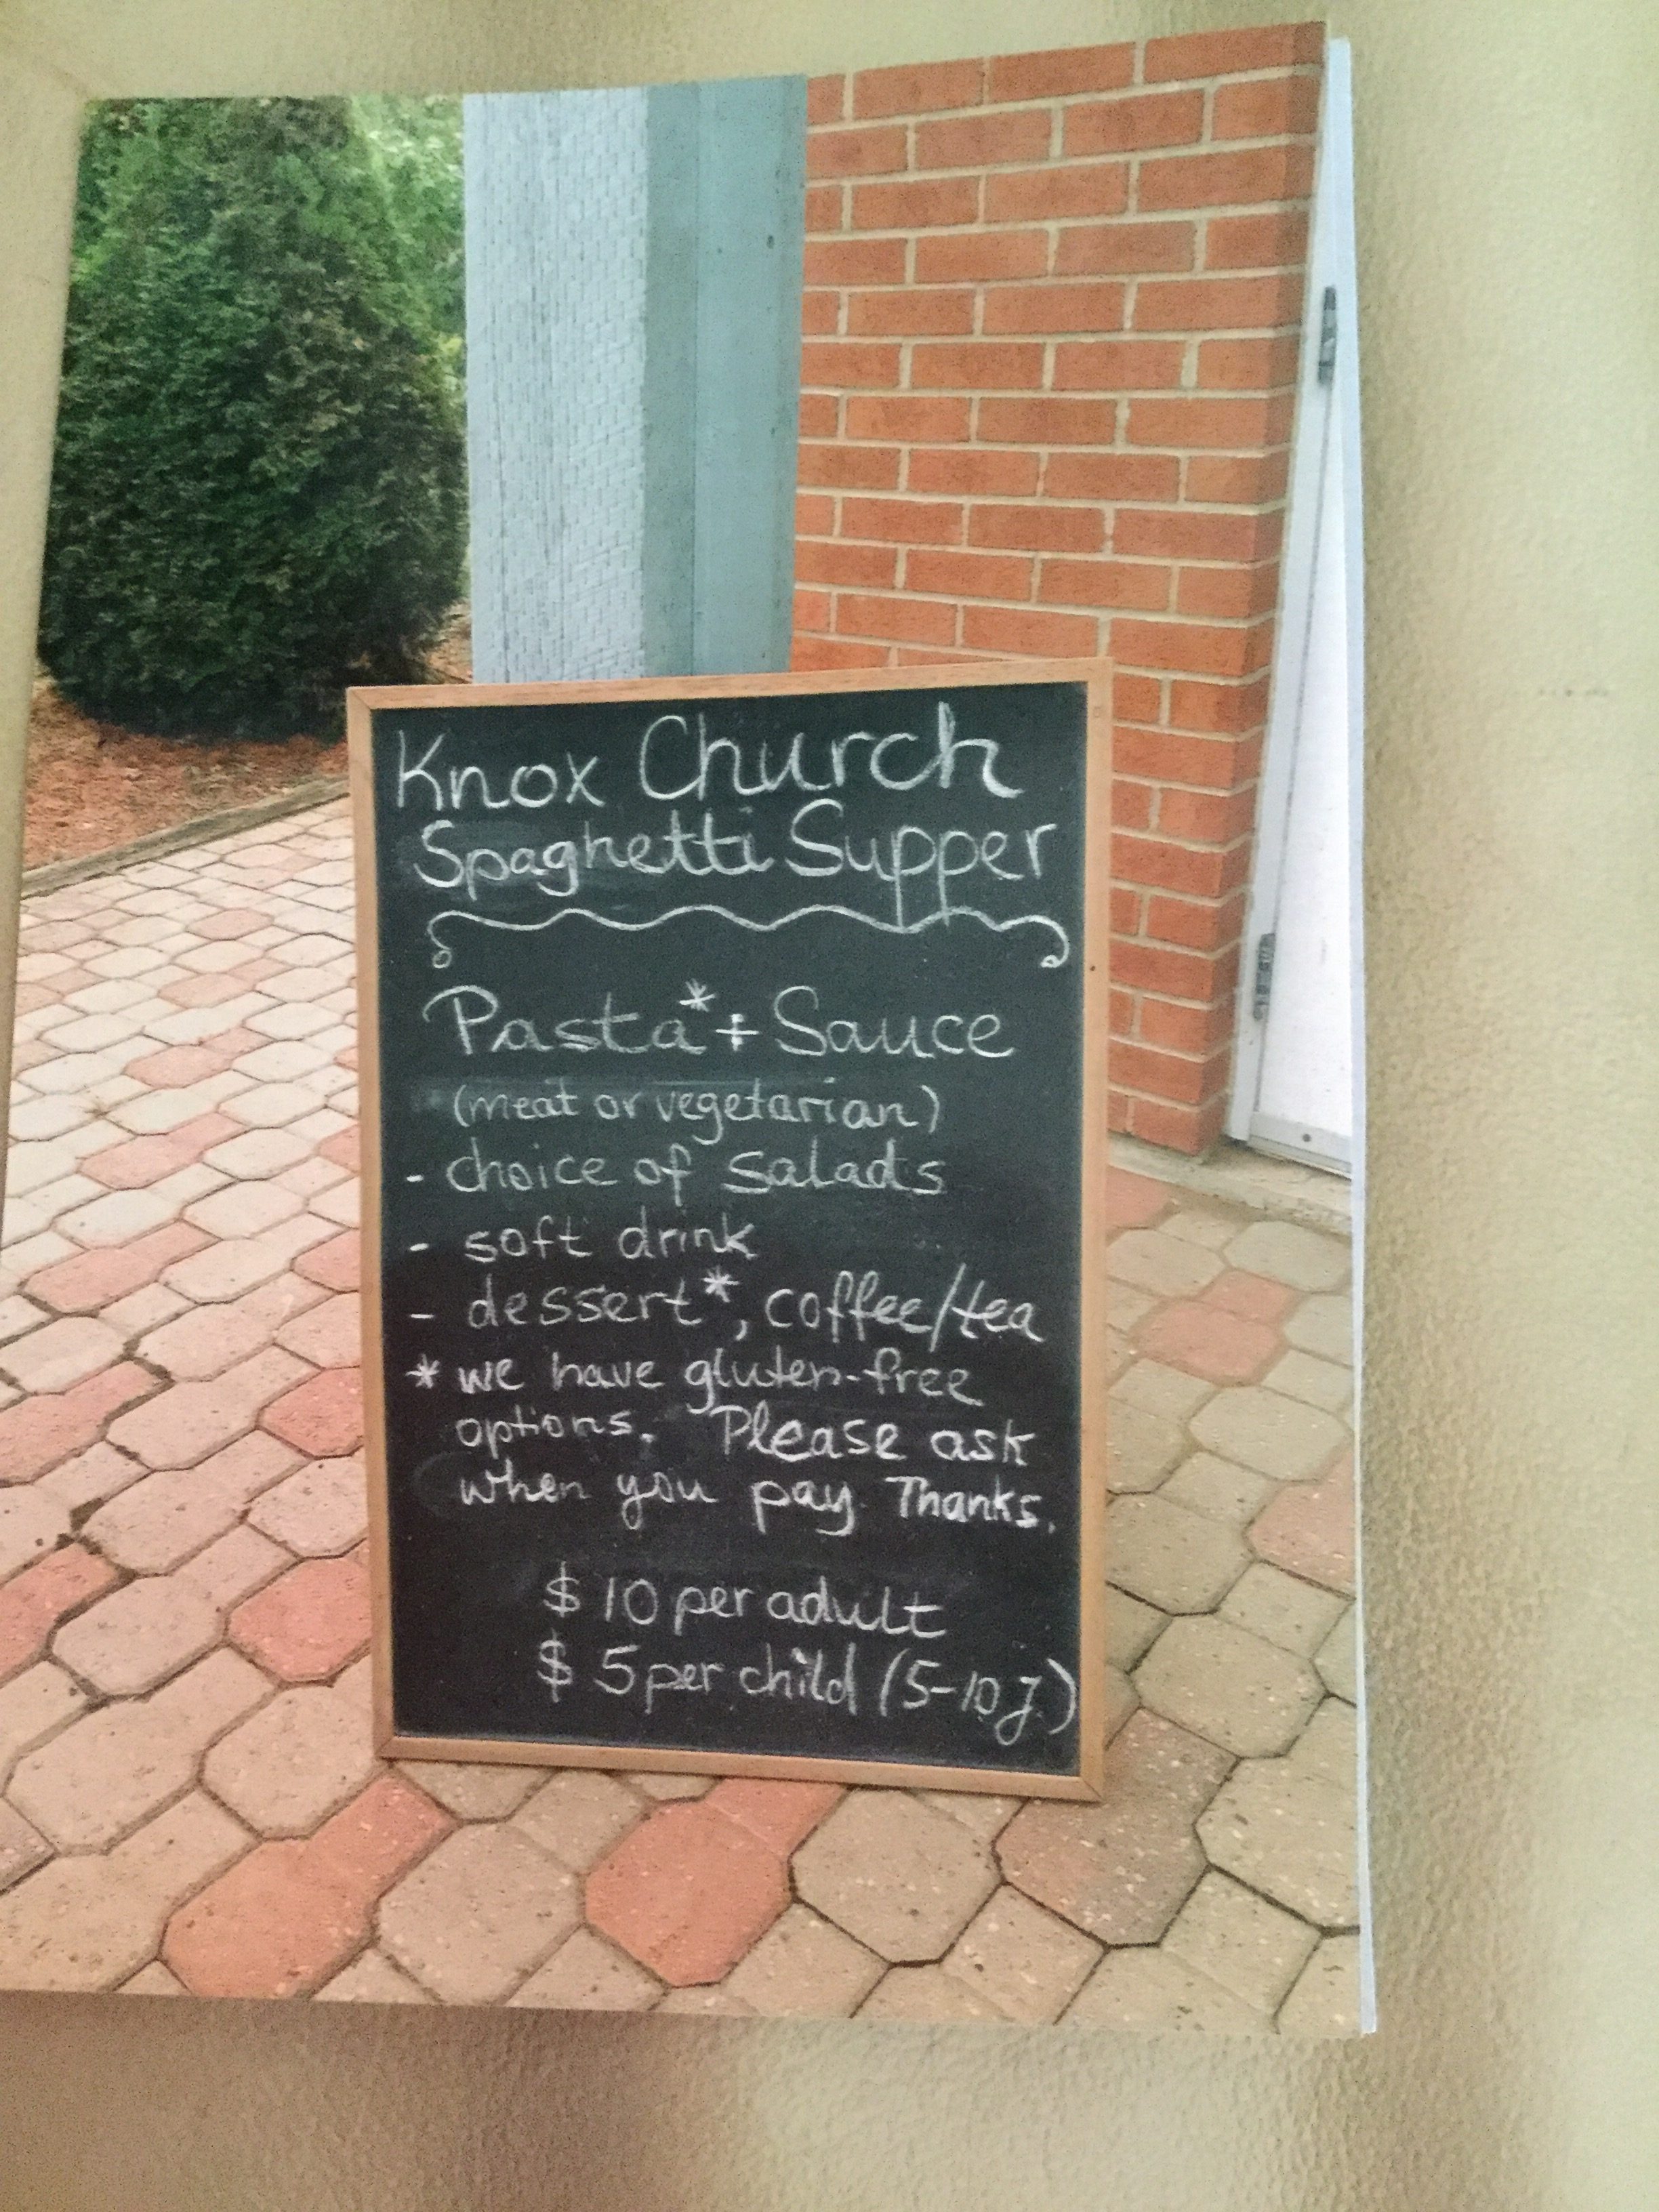 Knox Church
Spaghetti Supper
Pasta* + Sauce
(meat or vegetarian)
- choice of Salads
- soft drink
- dessert*, coffee/tea
* we have gluten-free
options. Please ask
when you pay. Thanks.
$10 per adult
$5 per child (5-10 y.)